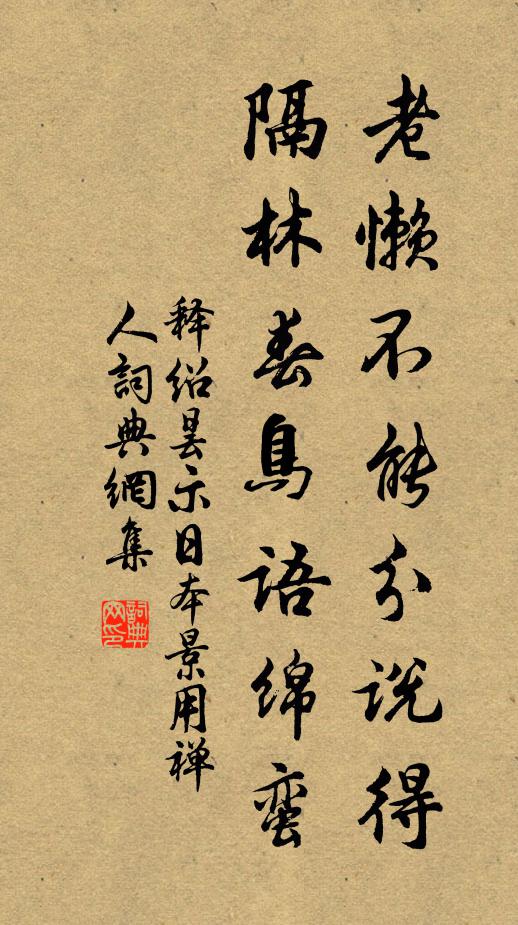 老懒不能分说得
隔林春鳥语绵蛮
释绍昙示日本景用禅
人詞典網集
詞典
网印